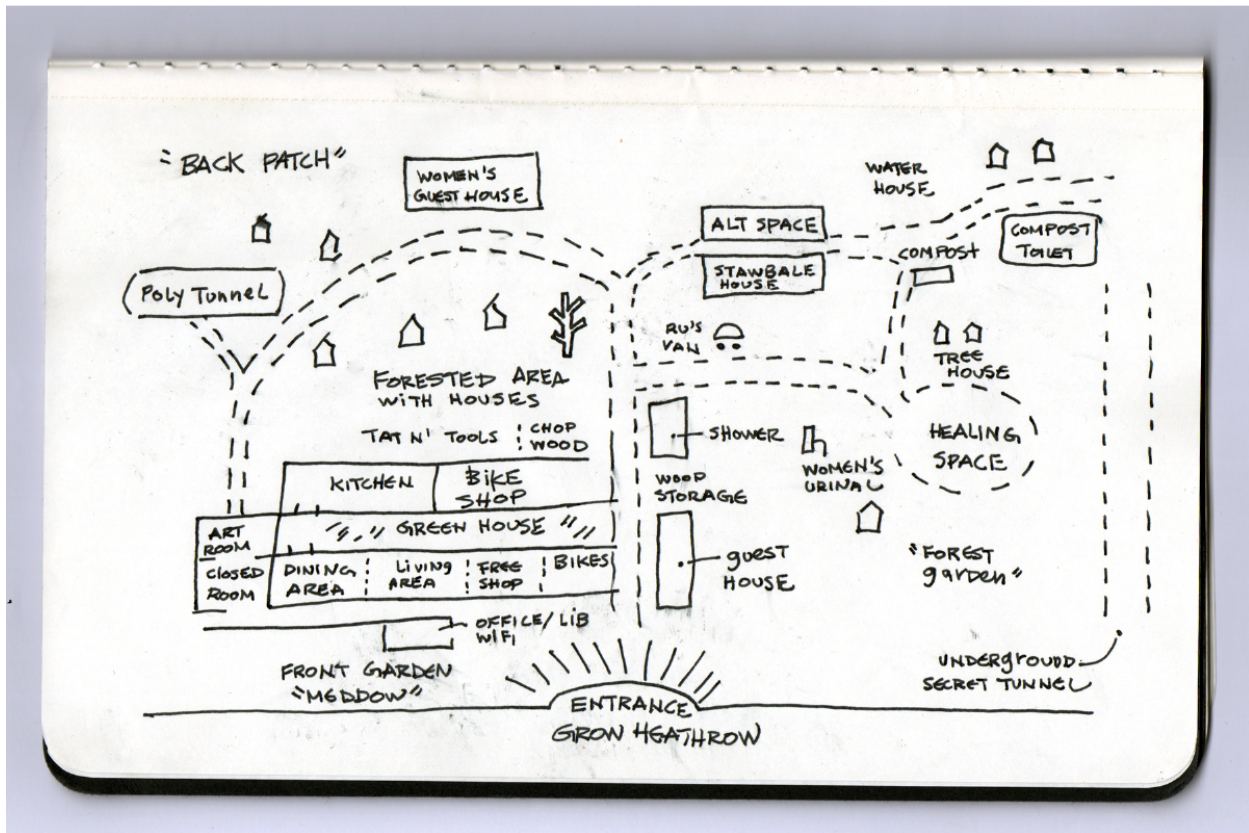 "BACK PATCH"
WOMEN'S
GUEST HOUSE
WATER
HOUSE
ALT SPACE
STAWBALE
HOUSE
COMPOST
COMPOST
TOILET
POLY TUNNEL
RU'S
VAN
TREE
HOUSE
FORESTED AREA
WITH HOUSES
TAT N' TOOLS
CHOP
WOOD
SHOWER
HEALING
SPACE
WOMEN'S
URINAL
WOOD
STORAGE
KITCHEN
BIKE
SHOP
GREEN HOUSE
ART
ROOM
CLOSED
ROOM
DINING
AREA
LIVING
AREA
FREE
SHOP
BIKES
GUEST
HOUSE
"FOREST
GARDEN"
OFFICE/LIB
WIFI
FRONT GARDEN
"MEDDOW"
UNDERGROUDD
SECRET TUNNEL
ENTRANCE
GROW HEATHROW